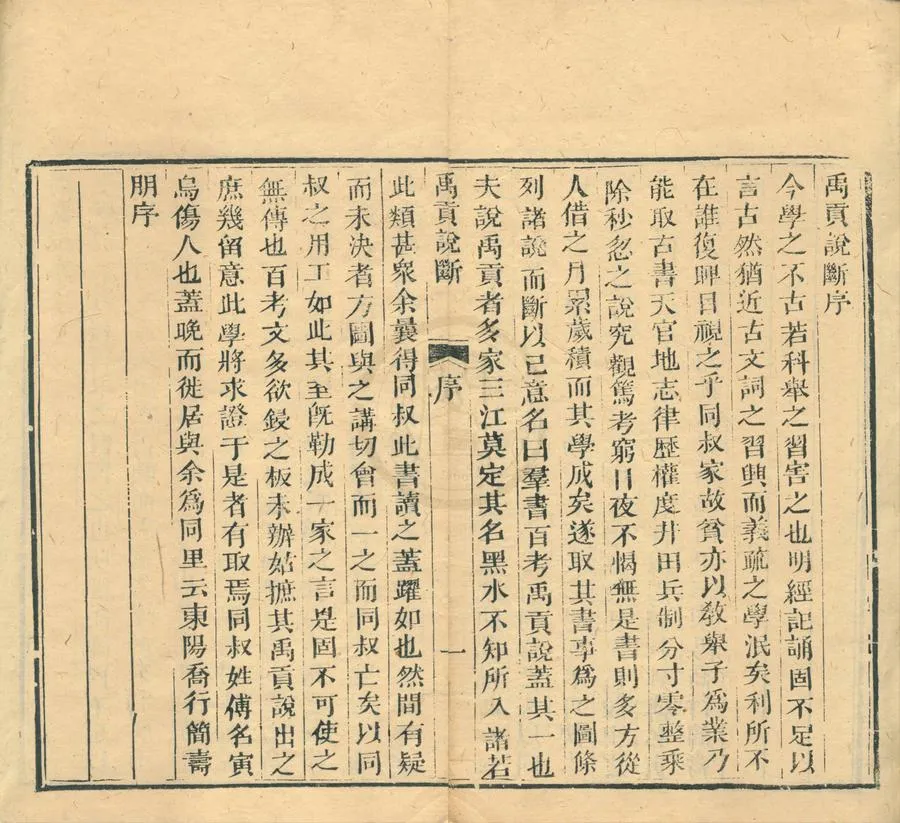 禹貢說斷序
今學之不古若科舉之習害之也明經記誦固不足以
言古然猶近古文詞之習興而義疏之學泯矣利所不
在誰復興目視之乎同叔家故貧亦以教舉子爲業乃
能取古書天官地志律歷權度井田兵制分寸零整乘
除秒忽之說究觀篤考窮日夜不惕無是書則多方從
人借之月累歲積而其學成矣遂取其書事爲之圖條
列諸說而斷以已意名曰羣書百考禹貢說蓋其一也
夫說禹貢者多家三江莫定其名黑水不知所入諸若
禹貢說斷
序
一
此類甚衆余曩得同叔此書讀之蓋躍如也然間有疑
而未決者方圖與之講切會而一之而同叔亡矣以同
叔之用工如此其至旣勒成一家之言是固不可使之
無傳也百考文多欲鋟之板未辦姑摭其禹貢說出之
庶幾留意此學將求證于是者有取焉同叔姓傅名寅
烏傷人也蓋晚而徙居與余爲同里云東陽喬行簡壽
朋序